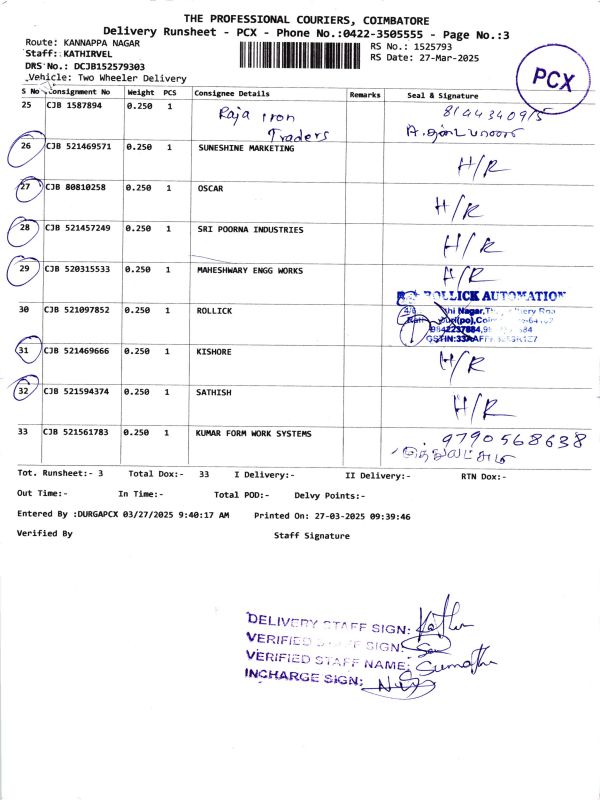 THE PROFESSIONAL COURIERS, COIMBATORE
Delivery Runsheet - PCX - Phone No.:0422-3505555 - Page No.:3
Route: KANNAPPA NAGAR
Staff: KATHIRVEL
DRS No.: DCJB152579303
Vehicle: Two Wheeler Delivery
RS No.: 1525793
RS Date: 27-Mar-2025
PCX
S No Consignment No Weight PCS Consignee Details Remarks Seal & Signature
25 CJB 1587894 0.250 1 Raja Iron Traders
26 CJB 521469571 0.250 1 SUNESHINE MARKETING H/R
27 CJB 80810258 0.250 1 OSCAR H/R
28 CJB 521457249 0.250 1 SRI POORNA INDUSTRIES H/R
29 CJB 520315533 0.250 1 MAHESHWARY ENGG WORKS H/R
30 CJB 521097852 0.250 1 ROLLICK
ROLLICK AUTOMATION
31 CJB 521469666 0.250 1 KISHORE H/R
32 CJB 521594374 0.250 1 SATHISH H/R
33 CJB 521561783 0.250 1 KUMAR FORM WORK SYSTEMS 9790568638
Tot. Runsheet:- 3 Total Dox:- 33 I Delivery:- II Delivery:- RTN Dox:-
Out Time:- In Time:- Total POD:- Delvy Points:-
Entered By :DURGAPCX 03/27/2025 9:40:17 AM Printed On: 27-03-2025 09:39:46
Verified By Staff Signature
DELIVERY STAFF SIGN:
VERIFIED STAFF SIGN:
VERIFIED STAFF NAME: Sumathi
INCHARGE SIGN: